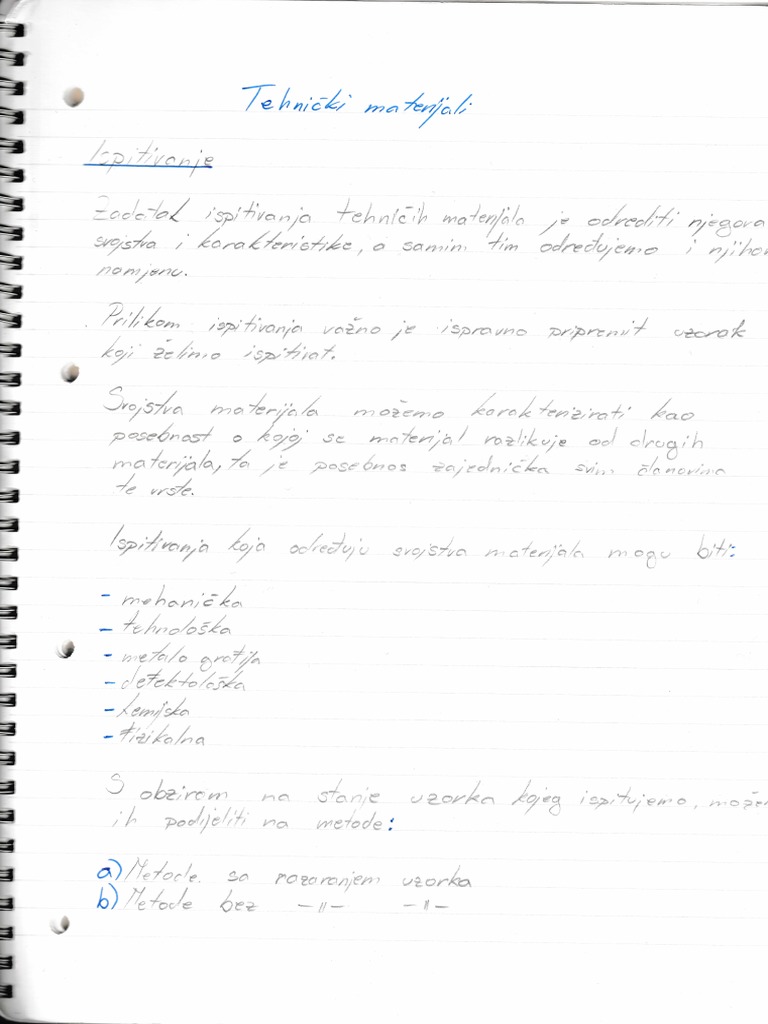 Tehnički materijali
Ispitivanje
Zadatak ispitivanja tehničih materijala je odrediti njegova
svojstva i karakteristike, a samim tim određujemo i njihov
namjenu.
Prilikom ispitivanja važno je ispravno pripremit uzorak
koji želimo ispitivat.
Svojstva materijala možemo karakterizirati kao
posebnost o kojoj se materijal razlikuje od drugih
materijala, ta je posebnos zajednička svim članovima
te vrste.
Ispitivanja koja određuju svojstva materijala mogu biti:
- mehanička
- tehnološka
- metalo grafija
- defektološka
- kemijska
- fizikalna
S obzirom na stanje uzorka kojeg ispitujemo, može
ih podijeliti na metode:
a) Metode sa razaranjem uzorka
b) Metode bez -||- -||-